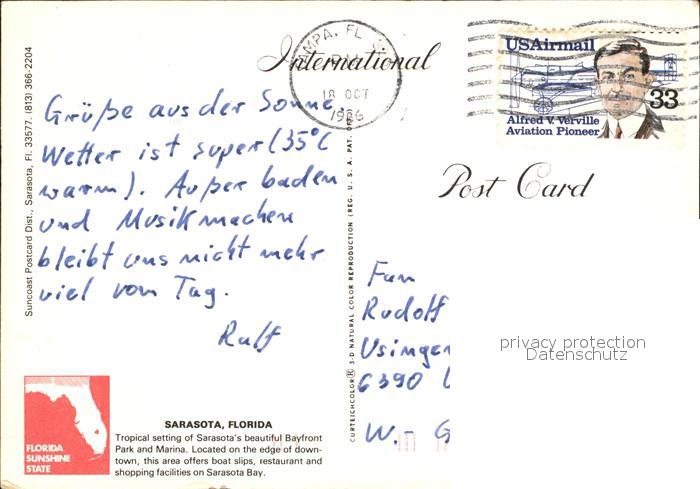 International
TAMPA, FL
PM
18 OCT
1986
USAirmail
33
Alfred V. Verville
Aviation Pioneer
Post Card
Grüße aus der Sonne
Wetter ist super (35°C
warm). Außer baden
und Musik machen
bleibt uns nicht mehr
viel vom Tag.
Ralf
Fam
Rudolf
Usingen
6390
W.- G
privacy protection
Datenschutz
Suncoast Postcard Dist., Sarasota, Fl. 33577. (813) 366-2204
CURTEICHCOLOR® 3-D NATURAL COLOR REPRODUCTION (REG. U. S. A. PAT.
FLORIDA
SUNSHINE
STATE
SARASOTA, FLORIDA
Tropical setting of Sarasota's beautiful Bayfront
Park and Marina. Located on the edge of down-
town, this area offers boat slips, restaurant and
shopping facilities on Sarasota Bay.